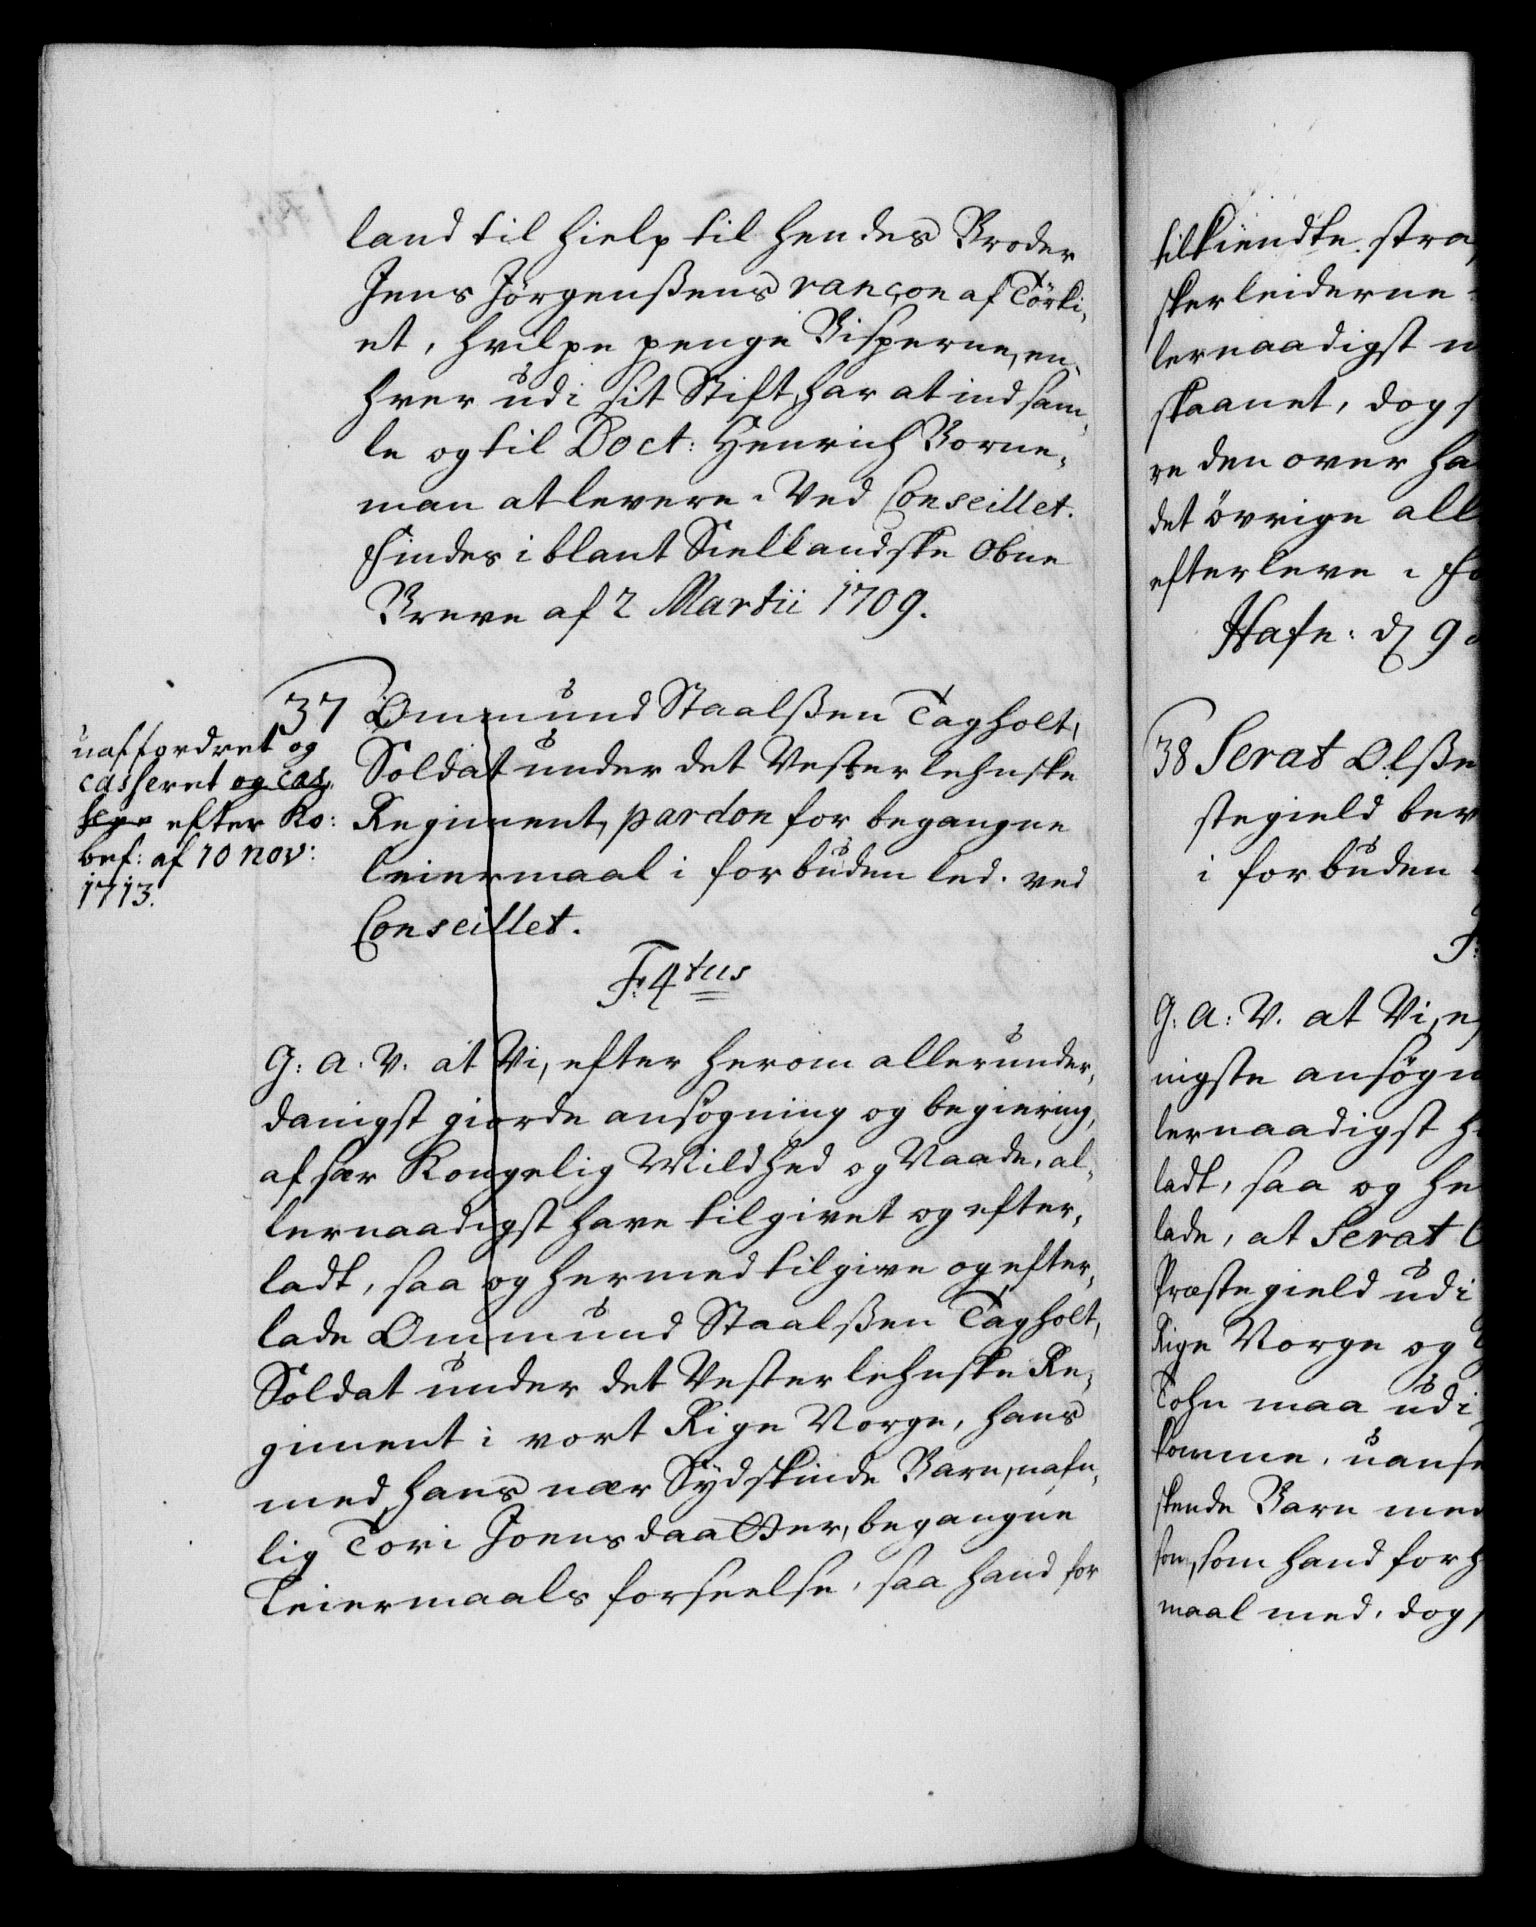 land til hielp til hendes Broder
Jens Jörgenßens rançon af Törki,
et, hvilke penge Bisperne, en,
hver udi sit Stift, har at indsam,
le og til Doct: Henrich Borne,
man at levere. Ved Conseillet.
Findes iblant Siellandske Obne
Breve af 2 Martii 1709.
37 Ommund Staalßen Tagholt,
Soldat under det Vesterlehnske
Regiment, pardon for begangne
leiermaal i forbuden led. ved
Conseillet.
uaffordret og
casseret og cas,
seре efter Ko:
bef: af 10 Nov:
1713.
F: 4tus
G: A: V. at Vi, efter herom allerunder,
danigst giorde ansøgning og begiering,
af sær Kongelig Mildhed og Naade, al,
lernaadigst have tilgivet og efter,
ladt, saa og hermed tilgive og efter,
lade Ommund Staalßen Tagholt,
Soldat under det Vesterlehnske Re,
giment i vort Rige Norge, hans
med hans nær Sydskinde Barn, nafn,
lig Tori Joensdaatter, begangne
Leiermaals forseelse, saa hand for
tilkiendte stra
skerleiderne
lernaadigst
skaanet, dog
re den over ha
det övrige all
efterleve.
Hafn: d 9
38 Serat Olße
stegield
i forbuden
G: A: V. at Vi, e
nigste ansögn
lernaadigst h
ladt, saa og he
lade, at Serat
Præstegield udi
Rige Norge og
Tohn maa udi
komme, uanse
skende Barn med
som hand for h
maal med, dog